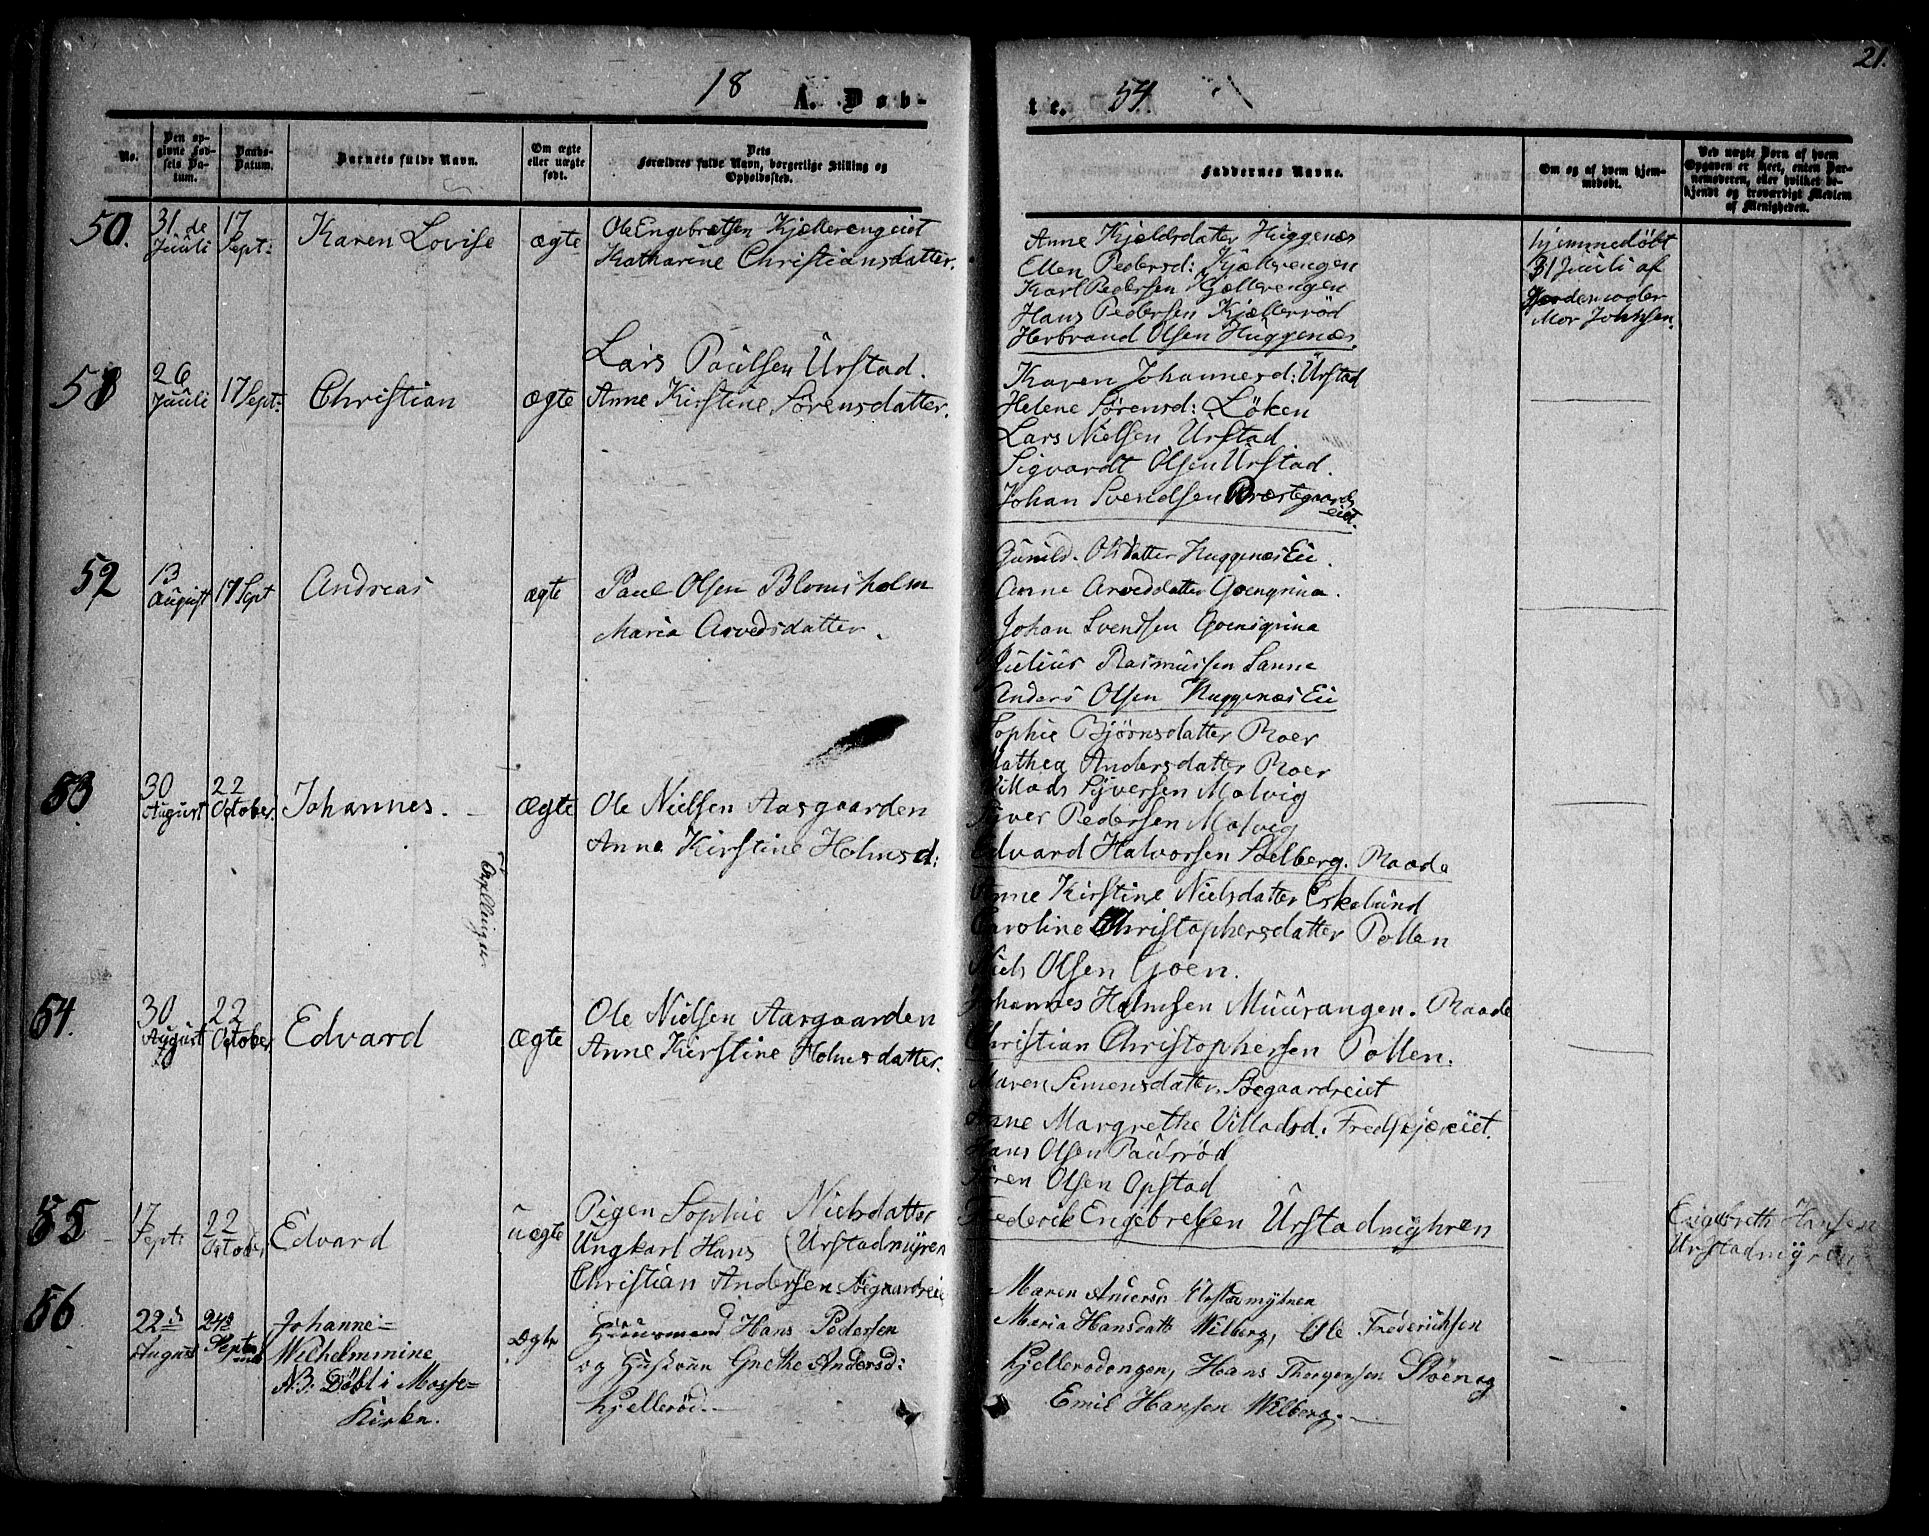 21.
18 54
A. Døb- te.
No.
Den opgivne Fødsels Datum.
Daabs-Datum.
Barnets fulde Navn.
Om ægte eller uægte født.
Dets Forældres fulde Navn, borgerlige Stilling og Opholdssted.
Faddernes Navne.
Om og af hvem hjemmedøbt.
Ved uægte Børn af hvem Opgaven er skeet, enten Barnemoderen, eller hvilket bekjendt og troværdigt Medlem af Menigheden.
50.
31 de Juuli
17 Sept:
Karen Lovise
ægte
Ole Engebretsen Kjællerengeiet
Katharine Christiansdatter.
Anne Kjeldsdatter Huggenæs
Ellen Pedersd: Kjællerengen
Karl Pedersen Gjællerengen
Hans Pedersen Kjællerrød
Herbrand Olsen Huggenæs.
hjemmedøbt
31 Juuli af
Jordemoder
Mor Johnsen.
51
26 Juuli
17 Sept:
Christian
ægte
Lars Paulsen Urstad.
Anne Kirstine Sørensdatter.
Karen Johannesd: Urstad
Helene Sørensd: Løken
Lars Nielsen Urstad
Sigvardt Olsen Urstad.
Johan Svendsen Præstegaards
eiet.
52
13 August
17 Sept
Andreas
ægte
Paul Olsen Blomsholm
Maria Arvedsdatter.
Gunild Olsdatter Huggenæs Eie
Anne Arveddatter Goengrina.
Johan Svendsen Goensgrina
Julius Rasmussen Sanne
Anders Olsen Huggenæs Eie
53
30 August
22 October
Johannes.
ægte
Ole Nielsen Aasgaarden
Anne Kirstine Holmsd:
Tvillinger
Sophie Bjørnsdatter Roer
Mathea Andersdatter Roer
Villads Syversen Molvig
Syver Pedersen Molvig
Edvard Halvorsen Solberg. Raade
54.
30 August
22 October
Edvard
ægte
Ole Nielsen Aasgaarden
Anne Kirstine Holmsdatter.
Anne Kirstine Nielsdatter Eskelund
Caroline Christophersdatter Pollen
Niels Olsen Goen.
Johannes Holmsen Muurangen. Raade
Christian Christophersen Pollen.
55
17 Sept:
22 October
Edvard
uægte
Pigen Sophie Nielsdatter
Ungkarl Hans (Urstadmyren
Christian Andersen Aegaardreie
Maren Simensdatter
Anne Margrethe Villadsd. Fredskjæreiet.
Hans Olsen Paulsrød
Søren Olsen Opstad
Frederik Engebretsen Urstadmyhren
Engebreth Hansen
Urstadmyren
56
22de August
24de September
Johanne=
Wilhelmine
NB. Døbt i Mosse=
Kirke.
Ægte
Huusmand Hans Pedersen
og Hustrue Grethe Andersd:
Kjellerød.
Maren Andersd Urstadmyhren
Maria Hansdatt Wilberg, Ole Frederichsen
Kjellerødengen, Hans Thorgersen Støen og
Emil Hansen Wilberg.